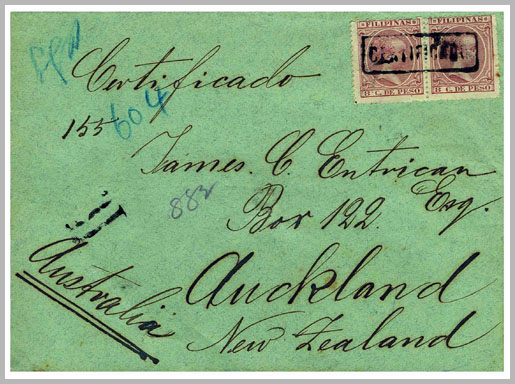 FILIPINAS FILIPINAS
CERTIFICADO
8 C. DE PESO 8 C. DE PESO
Certificado
155
604
James. C. Entrican
Esq.
882
Box 122.
Auckland
New Zealand
Australia